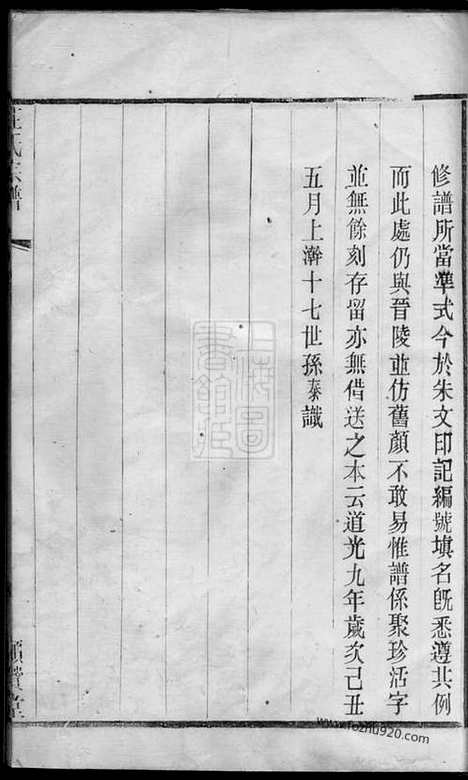 修譜所當準式今於朱文印記編號填名旣悉遵其例
而此處仍與晉陵並仿舊顏不敢易惟譜係聚珍活字
並無餘刻存留亦無借送之本云道光九年歲次己丑
五月上澣十七世孫泰識
氏宗譜
上海圖書館藏
www.fozhu920.com